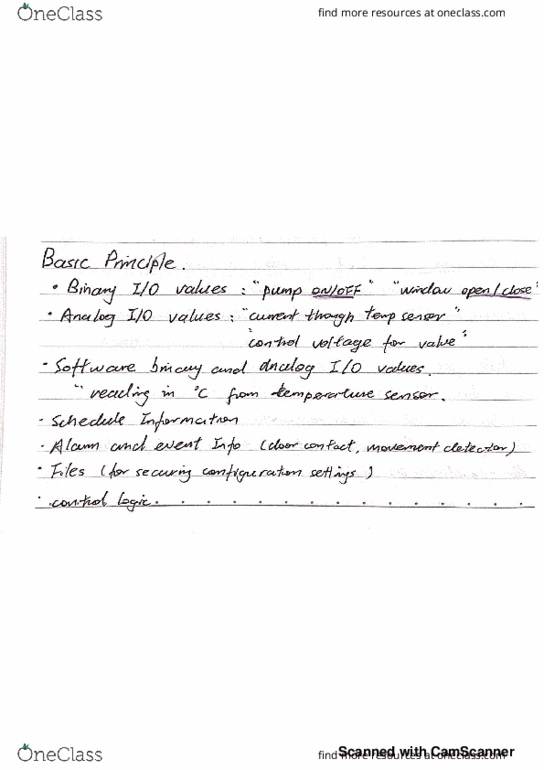 OneClass
find more resources at oneclass.com
Basic Principle.
• Binary I/O values : "pump ON/OFF" "window open/close"
• Analog I/O values : "current though temp sensor"
"control voltage for value"
• Software binary and analog I/O values.
"reading in °C from temperature sensor.
• Schedule Information
• Alarm and event Info (door contact, movement detector)
• Files (for securing configuration settings)
• control logic. . . . . . . . . . . . . . .
OneClass
find more resources at oneclass.com
Scanned with CamScanner